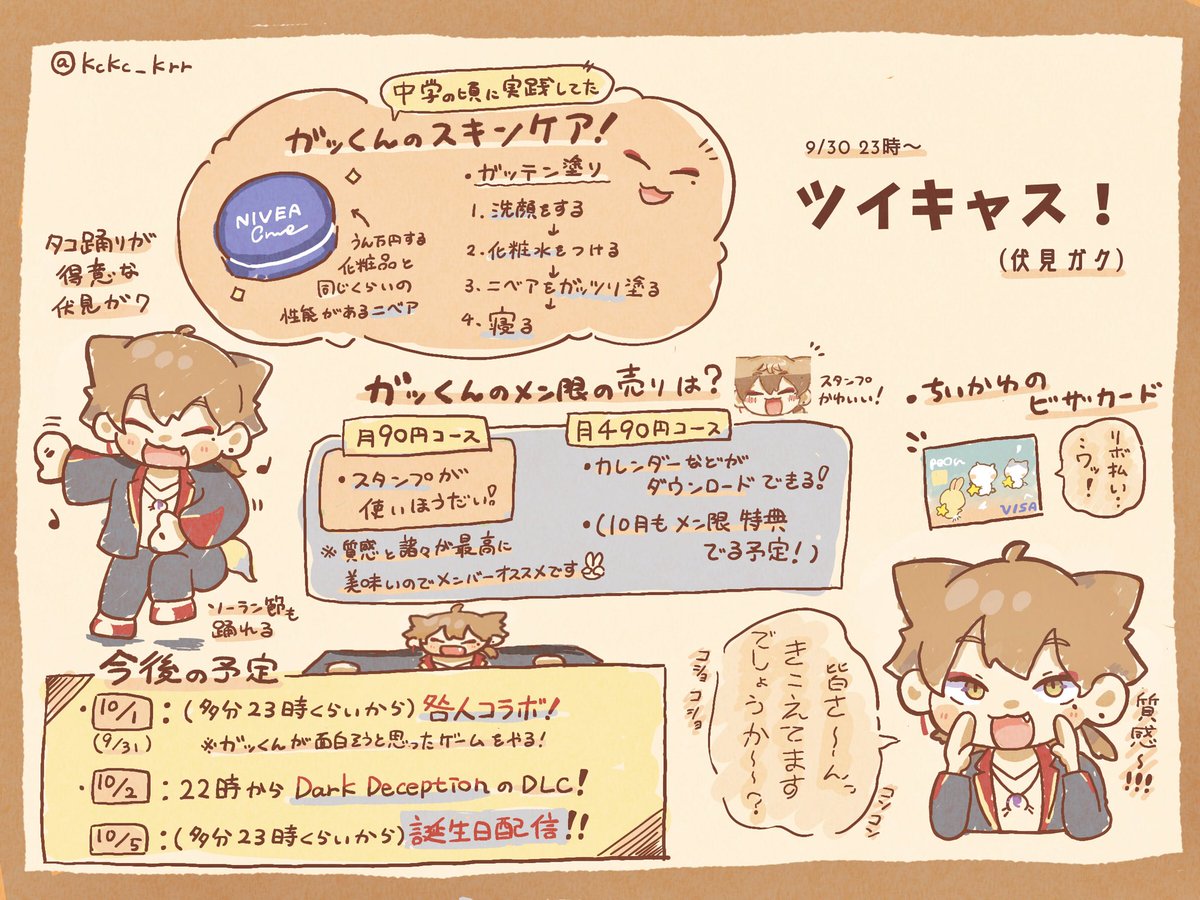 @kckc_krr
中学の頃に実践してた
ガッくんのスキンケア!
NIVEA
Creme
うん万円する
化粧品と
同じくらいの
性能があるニベア
・ガッテン塗り
1. 洗顔をする
↓
2. 化粧水をつける
↓
3. ニベアをガッツリ塗る
↓
4. 寝る
9/30 23時〜
ツイキャス!
(伏見ガク)
タコ踊りが
得意な
伏見ガク
ソーラン節も
踊れる
ガッくんのメン限の売りは?
スタンプ
かわいい!
月90円コース
・スタンプが
使いほうだい!
※質感と諸々が最高に
美味いのでメンバーオススメです
月490円コース
・カレンダーなどが
ダウンロードできる!
・(10月もメン限特典
でる予定!)
・ちいかわの
ビザカード
VISA
リボ払い…
ウッ!
今後の予定
・10/1:(多分23時くらいから)咎人コラボ!
(9/31) ※ガッくんが面白そうと思ったゲームをやる!
・10/2:22時からDark DeceptionのDLC!
10/5:(多分23時くらいから)誕生日配信!!
皆さ〜ん、
きこえてます
でしょうか〜〜?
コショコショ
コンコン
質感〜!!!